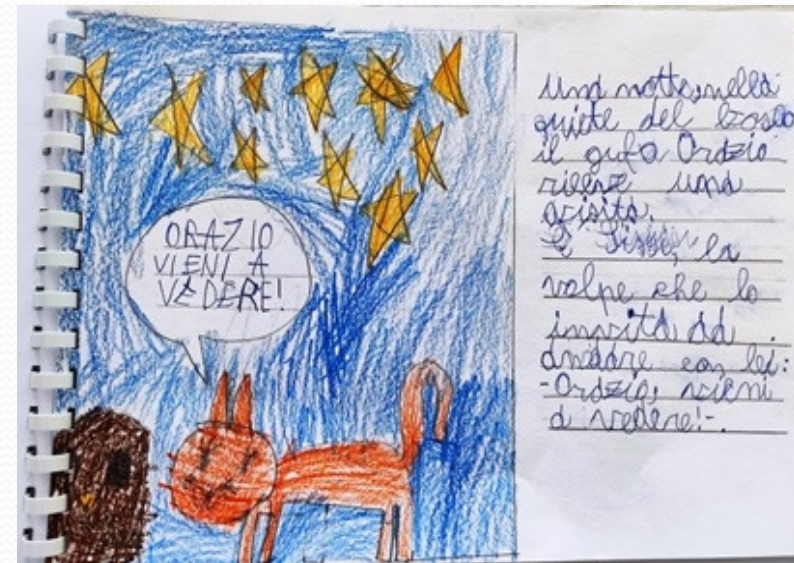 ORAZIO
VIENI A
VEDERE!
Una notte, nella
quiete del bosco
il gufo Orazio
riceve una
visita.
È Sissi, la
volpe che lo
invita ad
andare con lei:
-Orazio, vieni
a vedere!-.